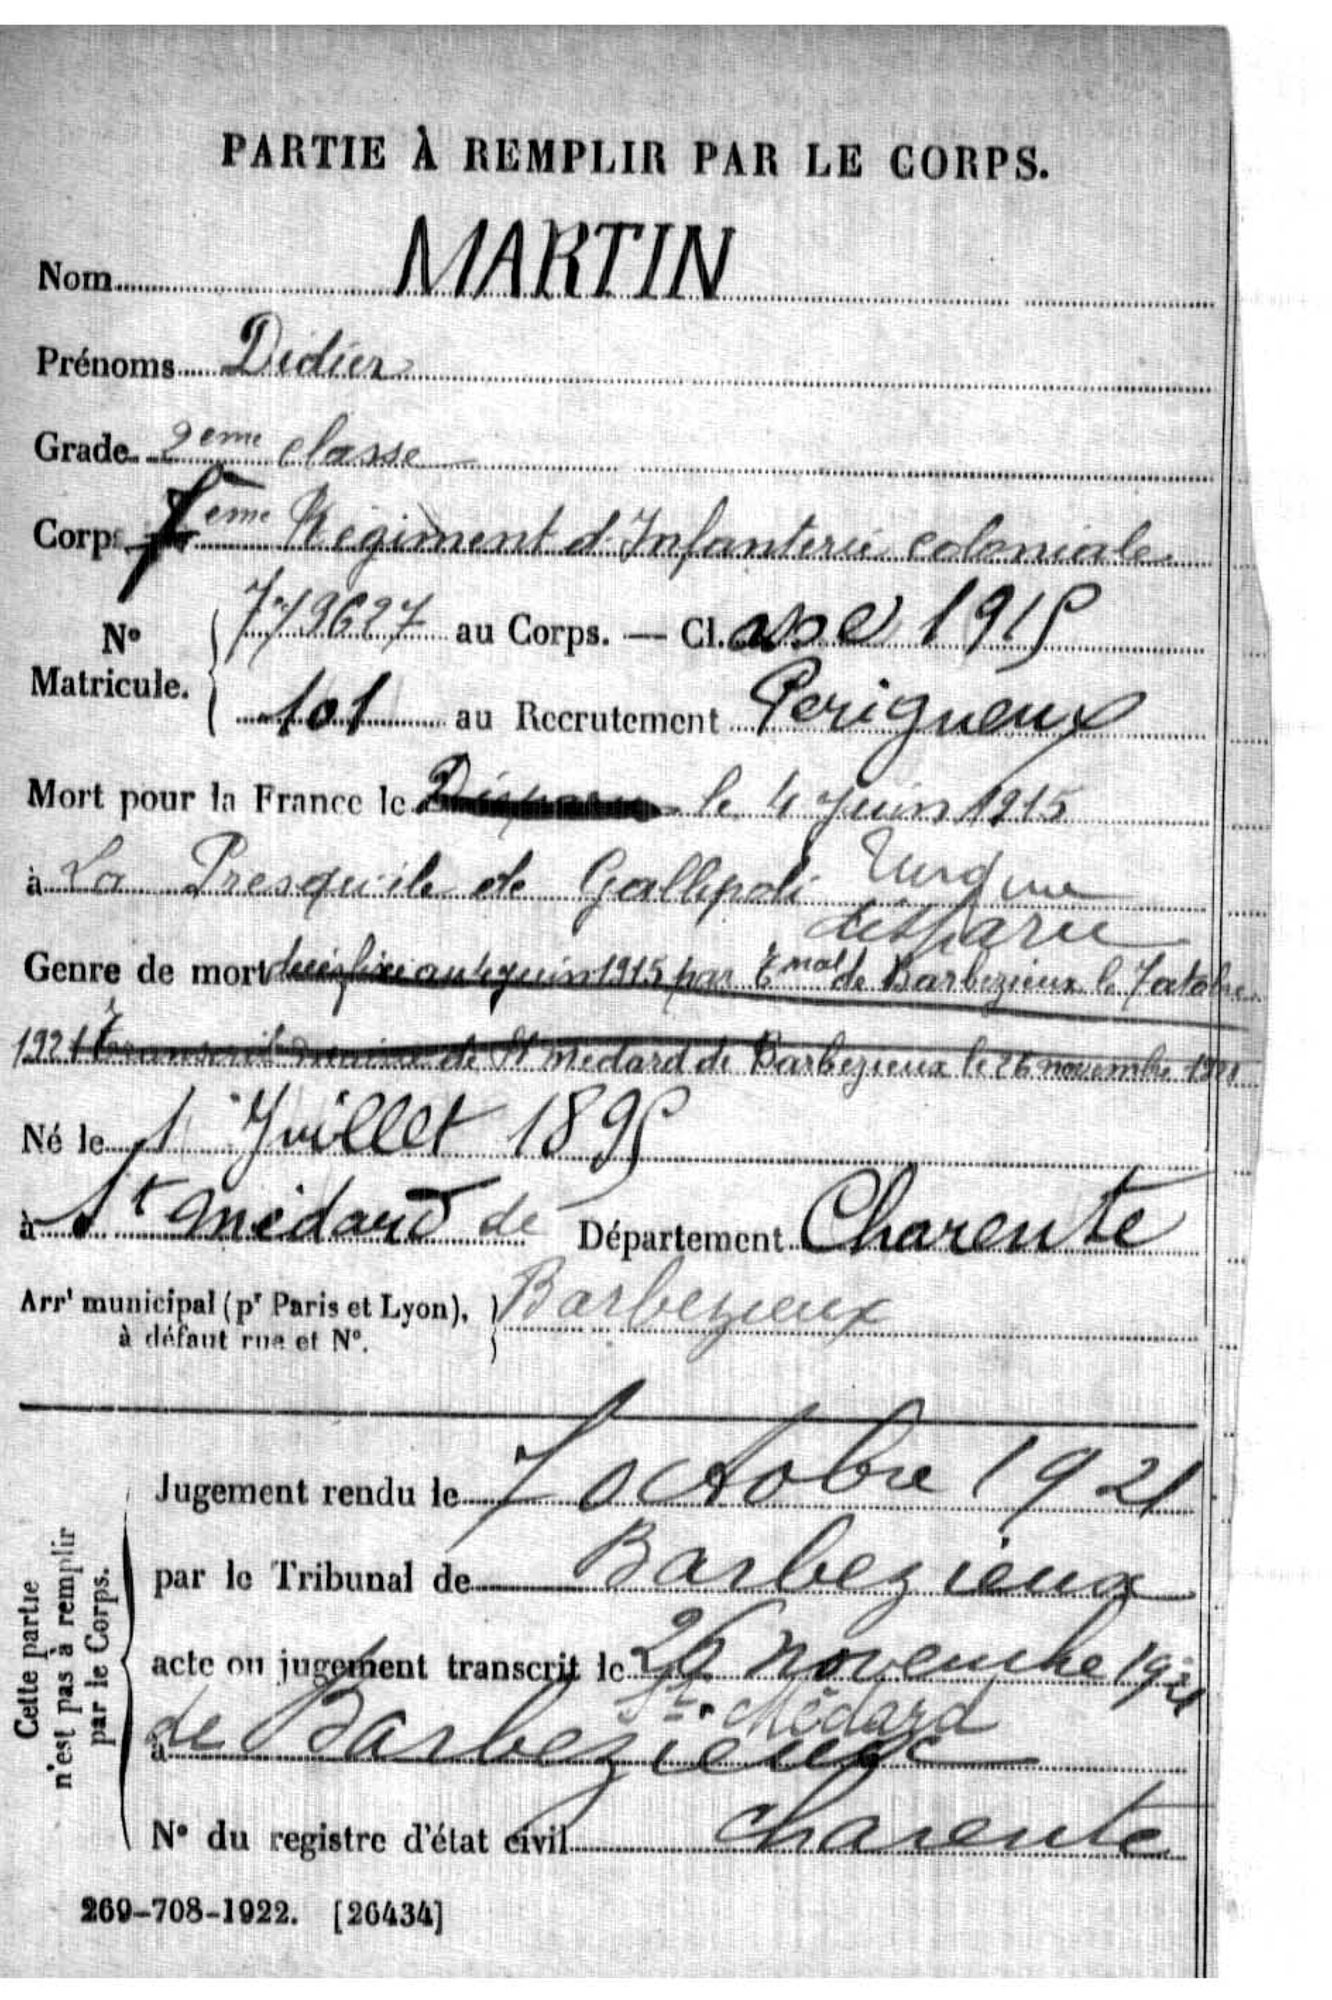 PARTIE À REMPLIR PAR LE CORPS.
Nom MARTIN
Prénoms Didier
Grade 2eme classe
Corps 7eme Régiment d'Infanterie coloniale
No Maticule. 779627 au Corps. — Cl.asse 1915
101 au Recrutement Perigueux
Mort pour la France le Disparu le 4 Juin 1915
à La Presqu'ile de Gallipoli Turquie
disparu
Genre de mort décès fixé au 4 juin 1915 par Tnal de Barbezieux le 7 octobre
1921 Transcrit mairie de St Médard de Barbezieux le 26 novembre 1921
Né le 1 Juillet 1895
à St Médard de Département Charente
Arrt municipal (pr Paris et Lyon), Barbezieux
à défaut rue et No.
Jugement rendu le 7 octobre 1921
par le Tribunal de Barbezieux
acte ou jugement transcrit le 26 novembre 1921
St. Médard
à de Barbezieux
No du registre d'état civil Charente
Cette partie
n'est pas à remplir
par le Corps.
269-708-1922. [26434]